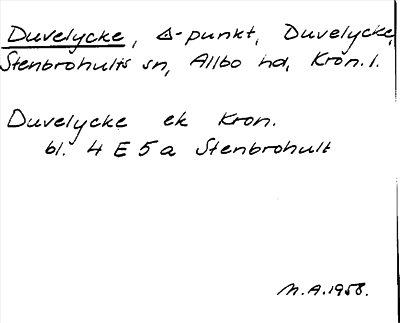 Duvelycke, △-punkt, Duvelycke,
Stenbrohults sn, Allbo hd, Kron. l.
Duvelycke ek Kron.
bl. 4 E 5 a Stenbrohult
M.A. 1958.